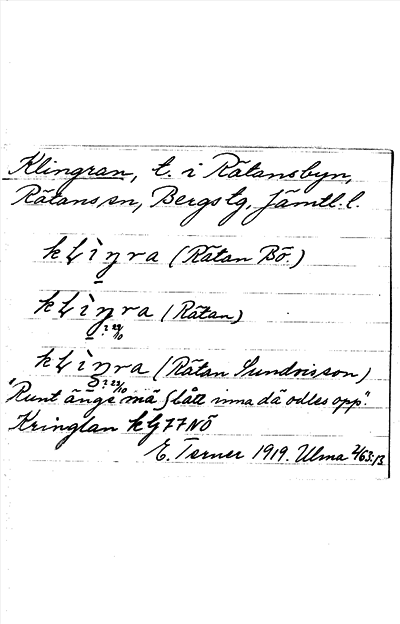 Klingran, t. i Rätansbyn,
Rätans sn, Bergs tg, Jämtl. l.
kLìŋra (Rätan Bö.)
kLìŋra (Rätan)
? 22/10
kLìŋra (Rätan Sundvisson)
? 22/10
"Runt änge mä slått inna dä odles opp".
Kringlan kG 77 NÖ
E. Terner 1919. Ulma 2/63:13